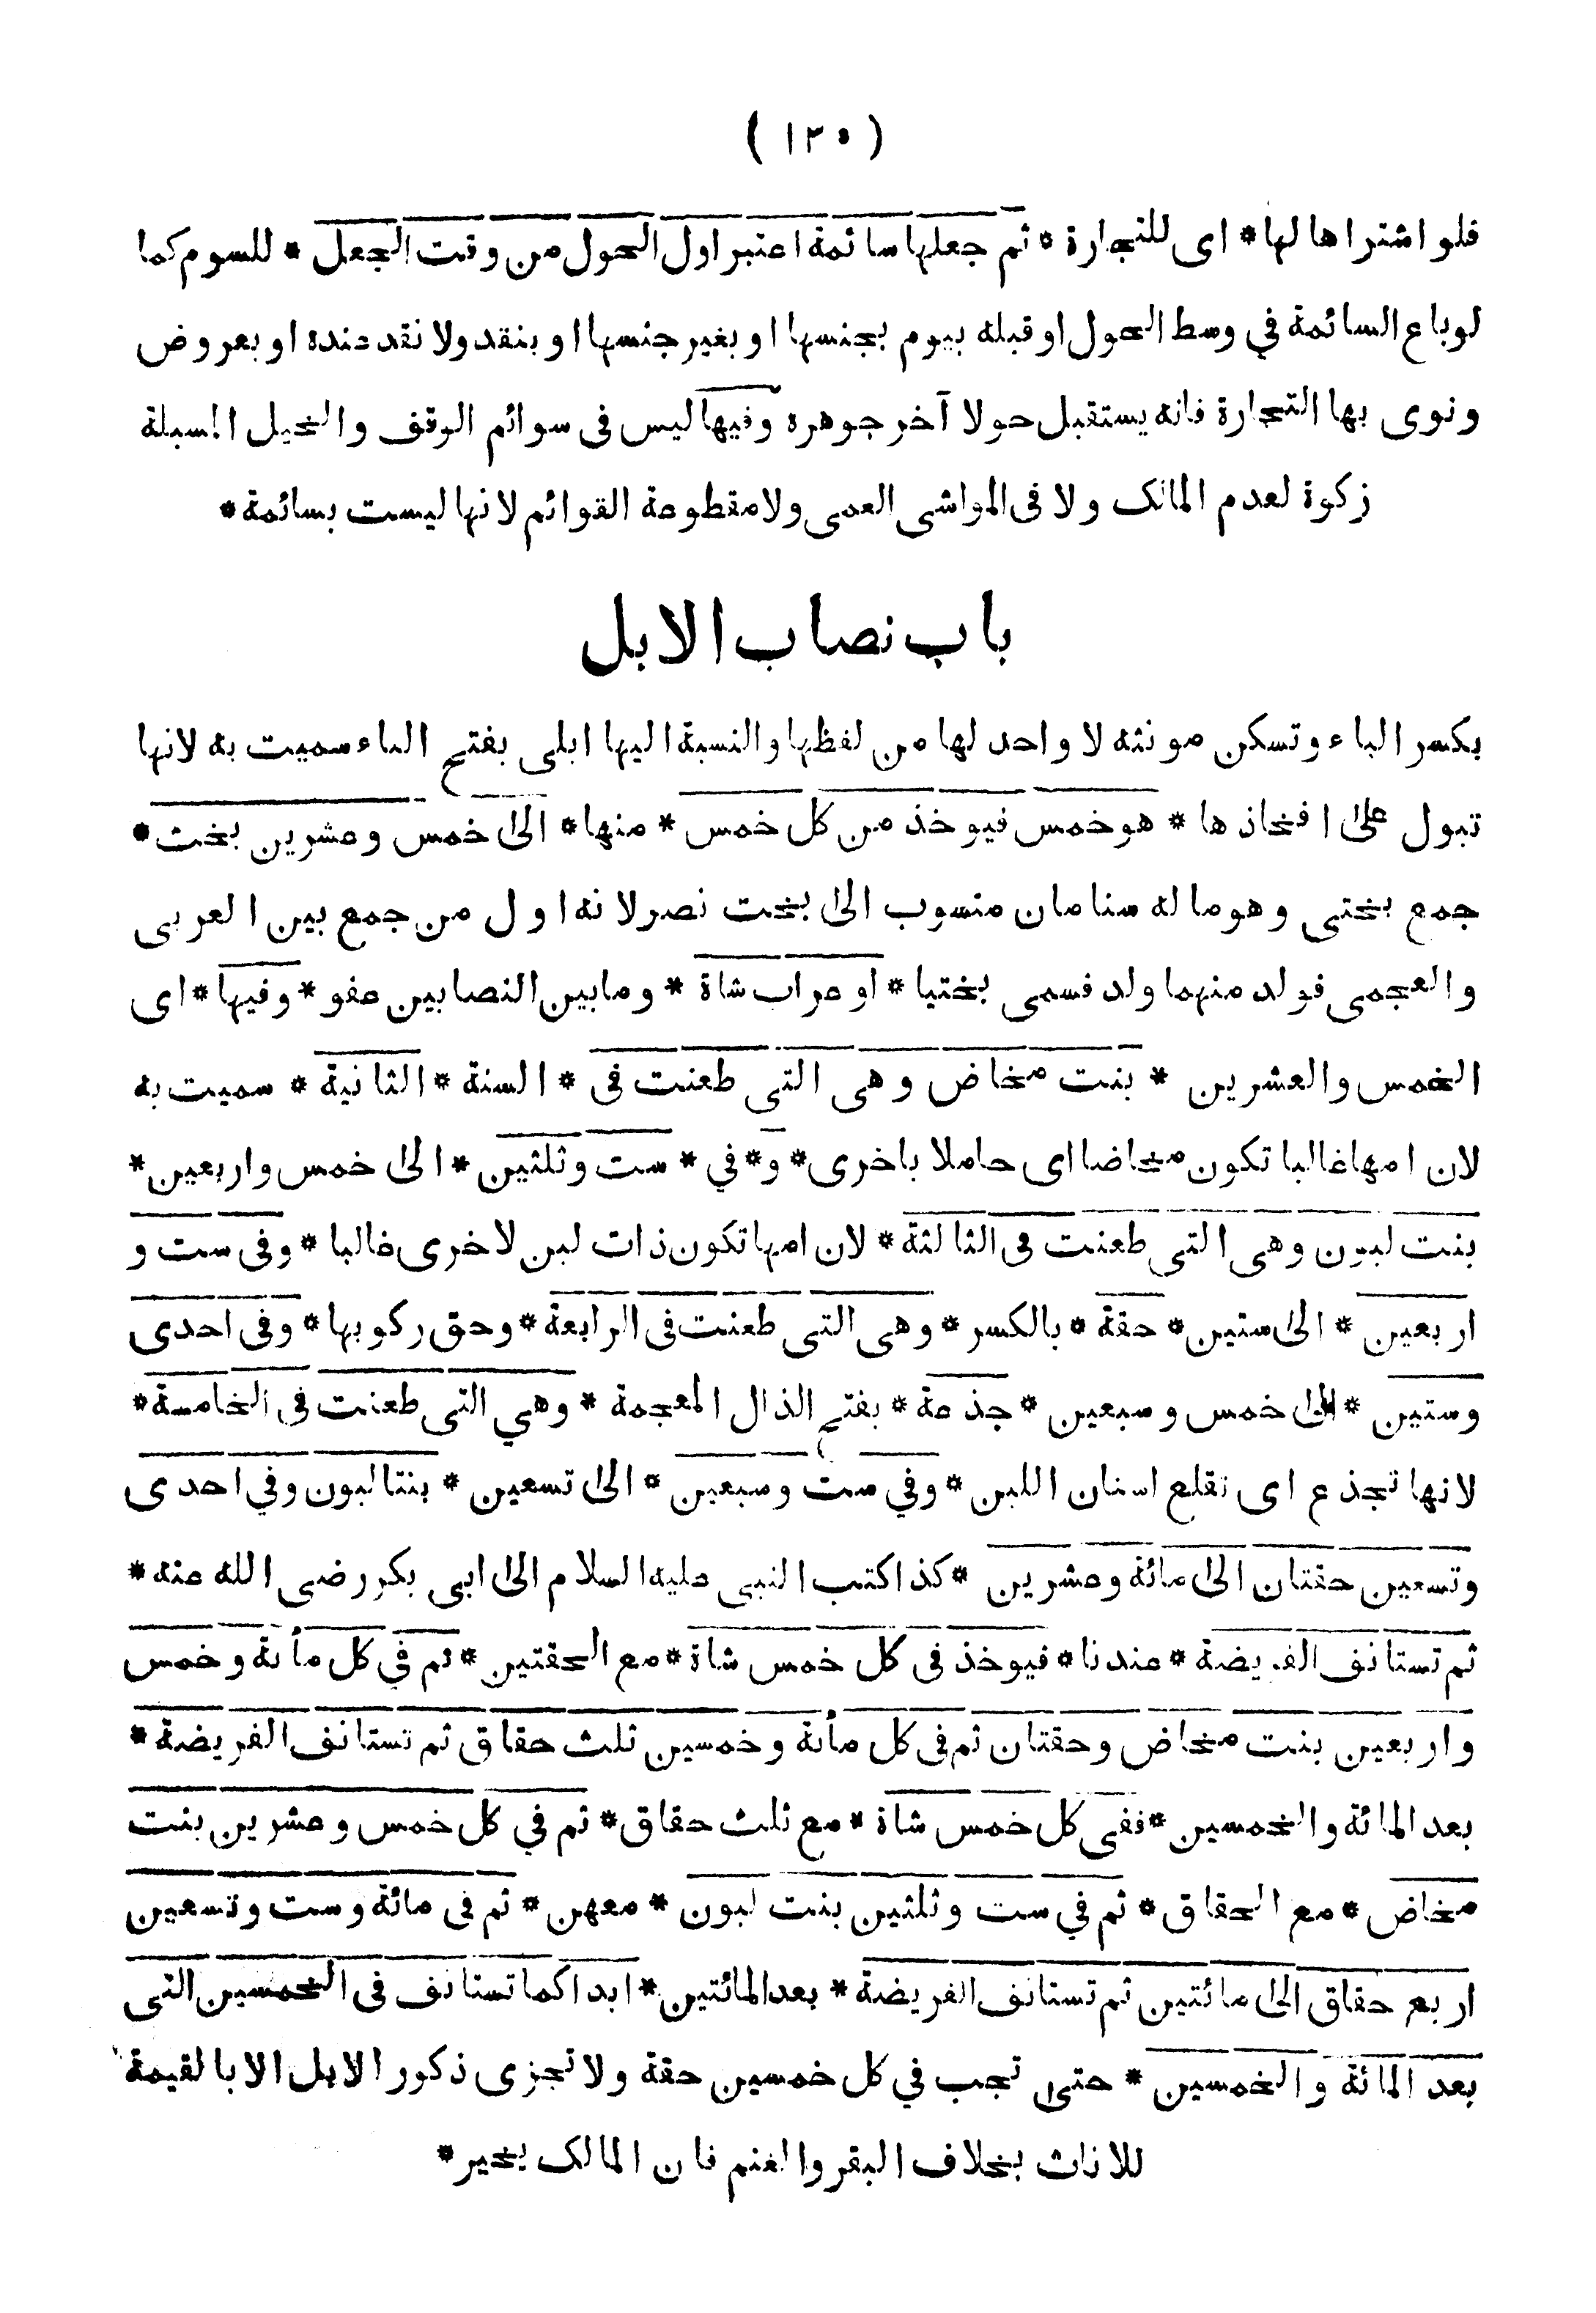 ( ١٣٥ )
فلو اشتراها لها * اى للتجارة * ثم جعلها سائمة اعتبر اول الحول من وقت الجعل * للسوم كما
لوباع السائمة في وسط الحول او قبله بيوم بجنسها او بغير جنسها او بنقد ولا نقد عنده او بعروض
ونوى بها التجارة فانه يستقبل حولا آخر جوهره وفيها ليس فى سوائم الوقف والخيل المسبلة
زكوة لعدم المالك ولا فى المواشى العمى ولا مقطوعة القوائم لانها ليست بسائمة *
باب نصاب الابل
بكسر الباء وتسكن مونثه لا واحد لها من لفظها والنسبة اليها ابلى بفتح الباء سميت به لانها
تبول على افخاذها * هو خمس فيوخذ من كل خمس * منها * الى خمس وعشرين بخت *
جمع بختى وهو ماله سنامان منسوب الى بخت نصر لانه اول من جمع بين العربى
والعجمى فولد منهما ولد فسمى بختيا * او عراب شاة * وما بين النصابين عفو * وفيها * اى
الخمس والعشرين * بنت مخاض وهى التى طعنت فى * السنة * الثانية * سميت به
لان امها غالبا تكون مخاضا اى حاملا باخرى * و * في * ست وثلثين * الى خمس واربعين *
بنت لبون وهى التى طعنت فى الثالثة * لان امها تكون ذات لبن لاخرى غالبا * وفى ست و
اربعين * الى ستين * حقة * بالكسر * وهى التى طعنت فى الرابعة * وحق ركوبها * وفى احدى
وستين * الى خمس وسبعين * جذعة * بفتح الذال المعجمة * وهي التى طعنت فى الخامسة *
لانها تجذع اى تقلع اسنان اللبن * وفي ست وسبعين * الى تسعين * بنتا لبون وفي احدى
وتسعين حقتان الى مائة وعشرين * كذا كتب النبى عليه السلام الى ابى بكر رضى الله عنه *
ثم تستانف الفريضة * عندنا * فيوخذ فى كل خمس شاة * مع الحقتين * ثم فى كل مأئة وخمس
واربعين بنت مخاض وحقتان ثم فى كل مأئة وخمسين ثلث حقاق ثم تستانف الفريضة *
بعد المائة والخمسين * ففى كل خمس شاة * مع ثلث حقاق * ثم في كل خمس وعشرين بنت
مخاض * مع الحقاق * ثم في ست وثلثين بنت لبون * معهن * ثم فى مائة وست وتسعين
اربع حقاق الى مائتين ثم تستانف الفريضة * بعد المائتين * ابدا كما تستانف فى الخمسين التى
بعد المائة والخمسين * حتى تجب في كل خمسين حقة ولا تجزى ذكور الابل الا بالقيمة
للاناث بخلاف البقر والغنم فان المالك يخير *